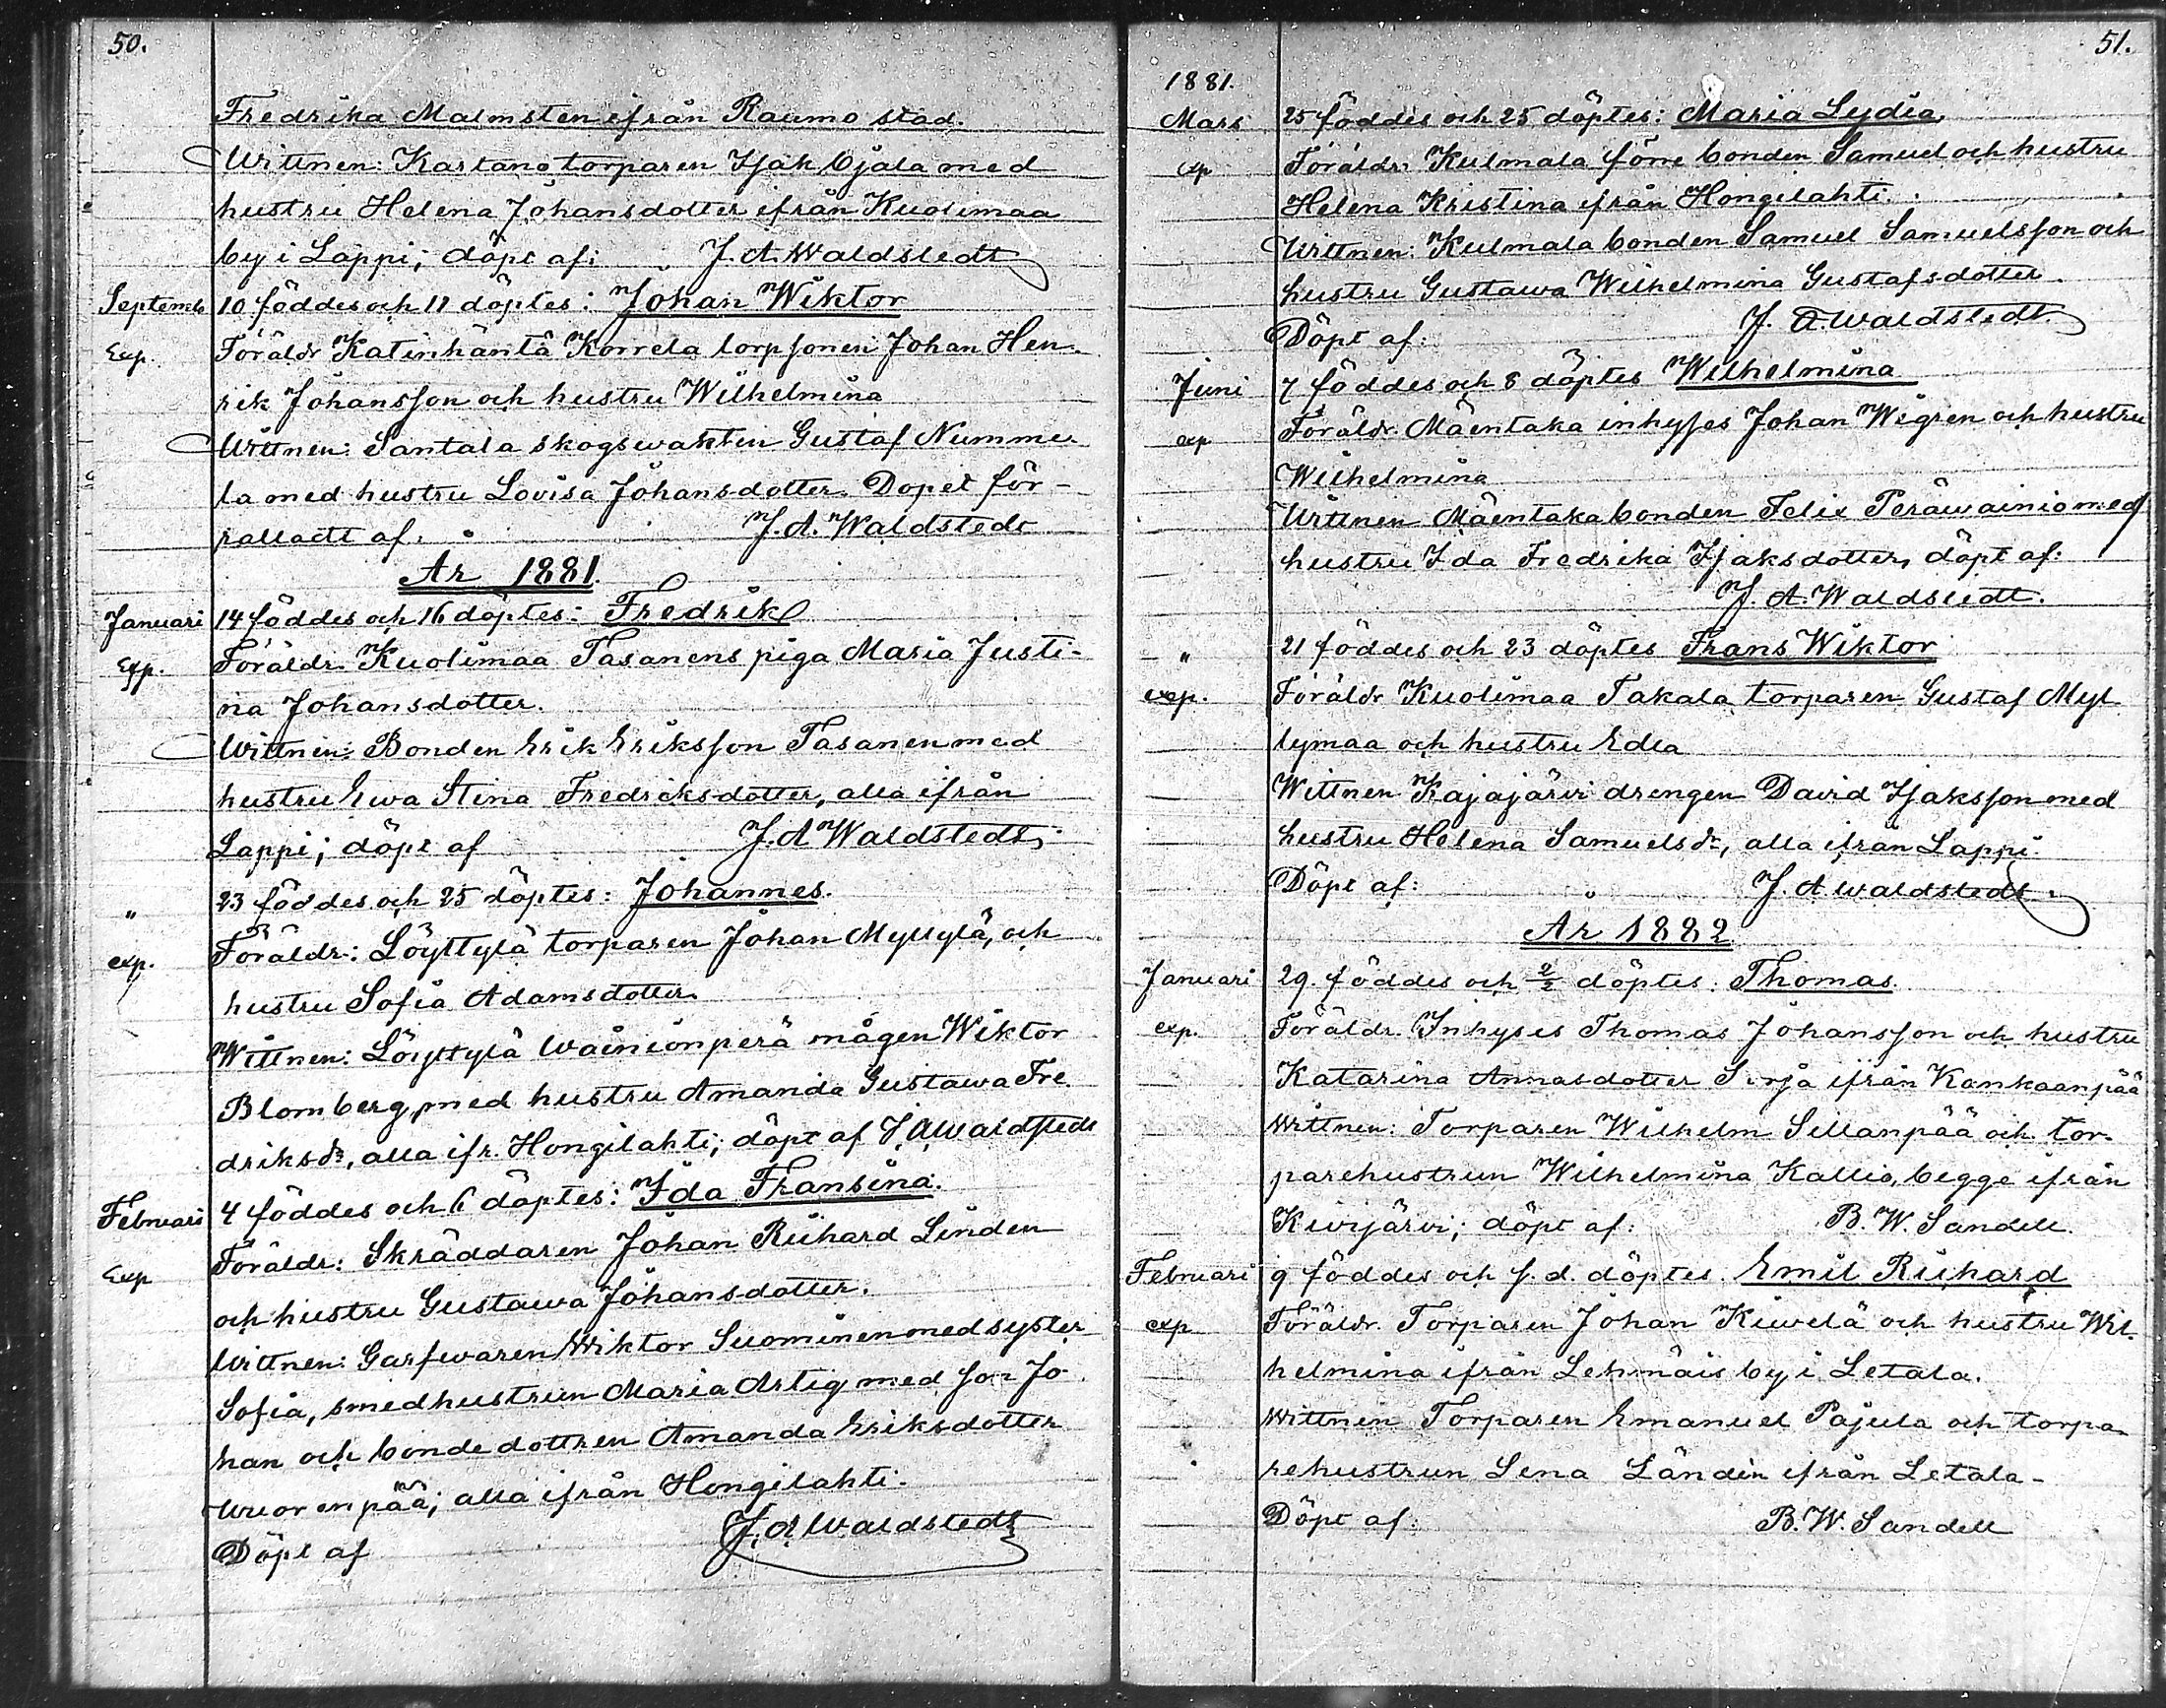 50.
Fredrika Malmsten ifrån Raumo stad.
Wittnen: Kartano torparen Isak Ojala med
hustru Helena Johansdotter ifrån Kuolimaa
by i Lappi; döpt af: J. A. Waldstedt
Septemb. 10 föddes och 11 döptes: Johan Wiktor
Exp. Föräldr Katinhäntä Korrela torpsonen Johan Hen-
rik Johansson och hustru Wilhelmina
Wittnen: Santala skogswakten Gustaf Numme
la med hustru Lovisa Johansdotter. Dopet för-
rättadt af. J. A. Waldstedt
År 1881.
Januari 14 föddes och 16 döptes: Fredrik
Exp. Föräldr. Kuolimaa Tasanens piga Maria Justi-
na Johansdotter.
Wittnen: Bonden Erik Eriksson Tasanen med
hustru Ewa Stina Fredriksdotter, alla ifrån
Lappi; döpt af J. A Waldstedt
" 23 föddes och 25 döptes: Johannes.
exp. Föräldr: Löyttylä torparen Johan Myllylä, och
hustru Sofia Adamsdotter.
Wittnen: Löyttylä Wäiniönperä mågen Wiktor
Blomberg, med hustru Amanda Gustawa Fre
driksdr, alla ifr. Hongilahti; döpt af J A Waldstedt
Februari 4 föddes och 6 döptes: Ida Fransina.
Exp Föräldr: Skräddaren Johan Richard Linden
och hustru Gustawa Johansdotter.
Wittnen: Garfwaren Wiktor Suominen med syster
Sofia, smedhustrun Maria Artig med son Jo
han och bondedottren Amanda Eriksdotter
Wuorenpää; alla ifrån Hongilahti.
Döpt af J. A Waldstedt
51.
1881.
Mars 25 föddes och 25 döptes: Maria Lydia
exp Föräldr: Kulmala förre bonden Samuel och hustru
Helena Kristina ifrån Hongilahti.
Wittnen: Kulmala bonden Samuel Samuelsson och
hustru Gustawa Wilhelmina Gustafsdotter.
Döpt af: J. A. Waldstedt
Juni 7 föddes och 8 döptes Wilhelmina
exp Föräldr. Mäentaka inhyses Johan Wigren och hustru
Wilhelmina
Wittnen Mäentaka bonden Felix Peräwainio med
hustru Ida Fredrika Isaksdotter, döpt af:
J. A. Waldstedt.
" 21 föddes och 23 döptes Frans Wiktor
exp. Föräldr Kuolimaa Takala torparen Gustaf Myl
lymaa och hustru Edla
Wittnen Kajajärvi drengen David Isaksson med
hustru Helena Samuelsdr, alla ifrån Lappi.
Döpt af: J. A Waldstedt
År 1882
Januari 29. föddes och 2/2 döptes: Thomas.
exp. Föräldr. Inhyses Thomas Johansson och hustru
Katarina Annasdotter ifrån Kankaanpää
Wittnen: Torparen Wilhelm Sillanpää och tor-
parehustrun Wilhelmina Kallio, begge ifrån
Kivijärvi; döpt af: B. W. Sandell.
Februari 9 föddes och s. d. döptes Emil Richard
exp Föräldr. Torparen Johan Kiwelä och hustru Wil-
helmina ifrån Lehmäis by i Letala.
Wittnen Torparen Emanuel Pajula och torpa-
rehustrun Lena Ländin ifrån Letala-
Döpt af: B. W. Sandell